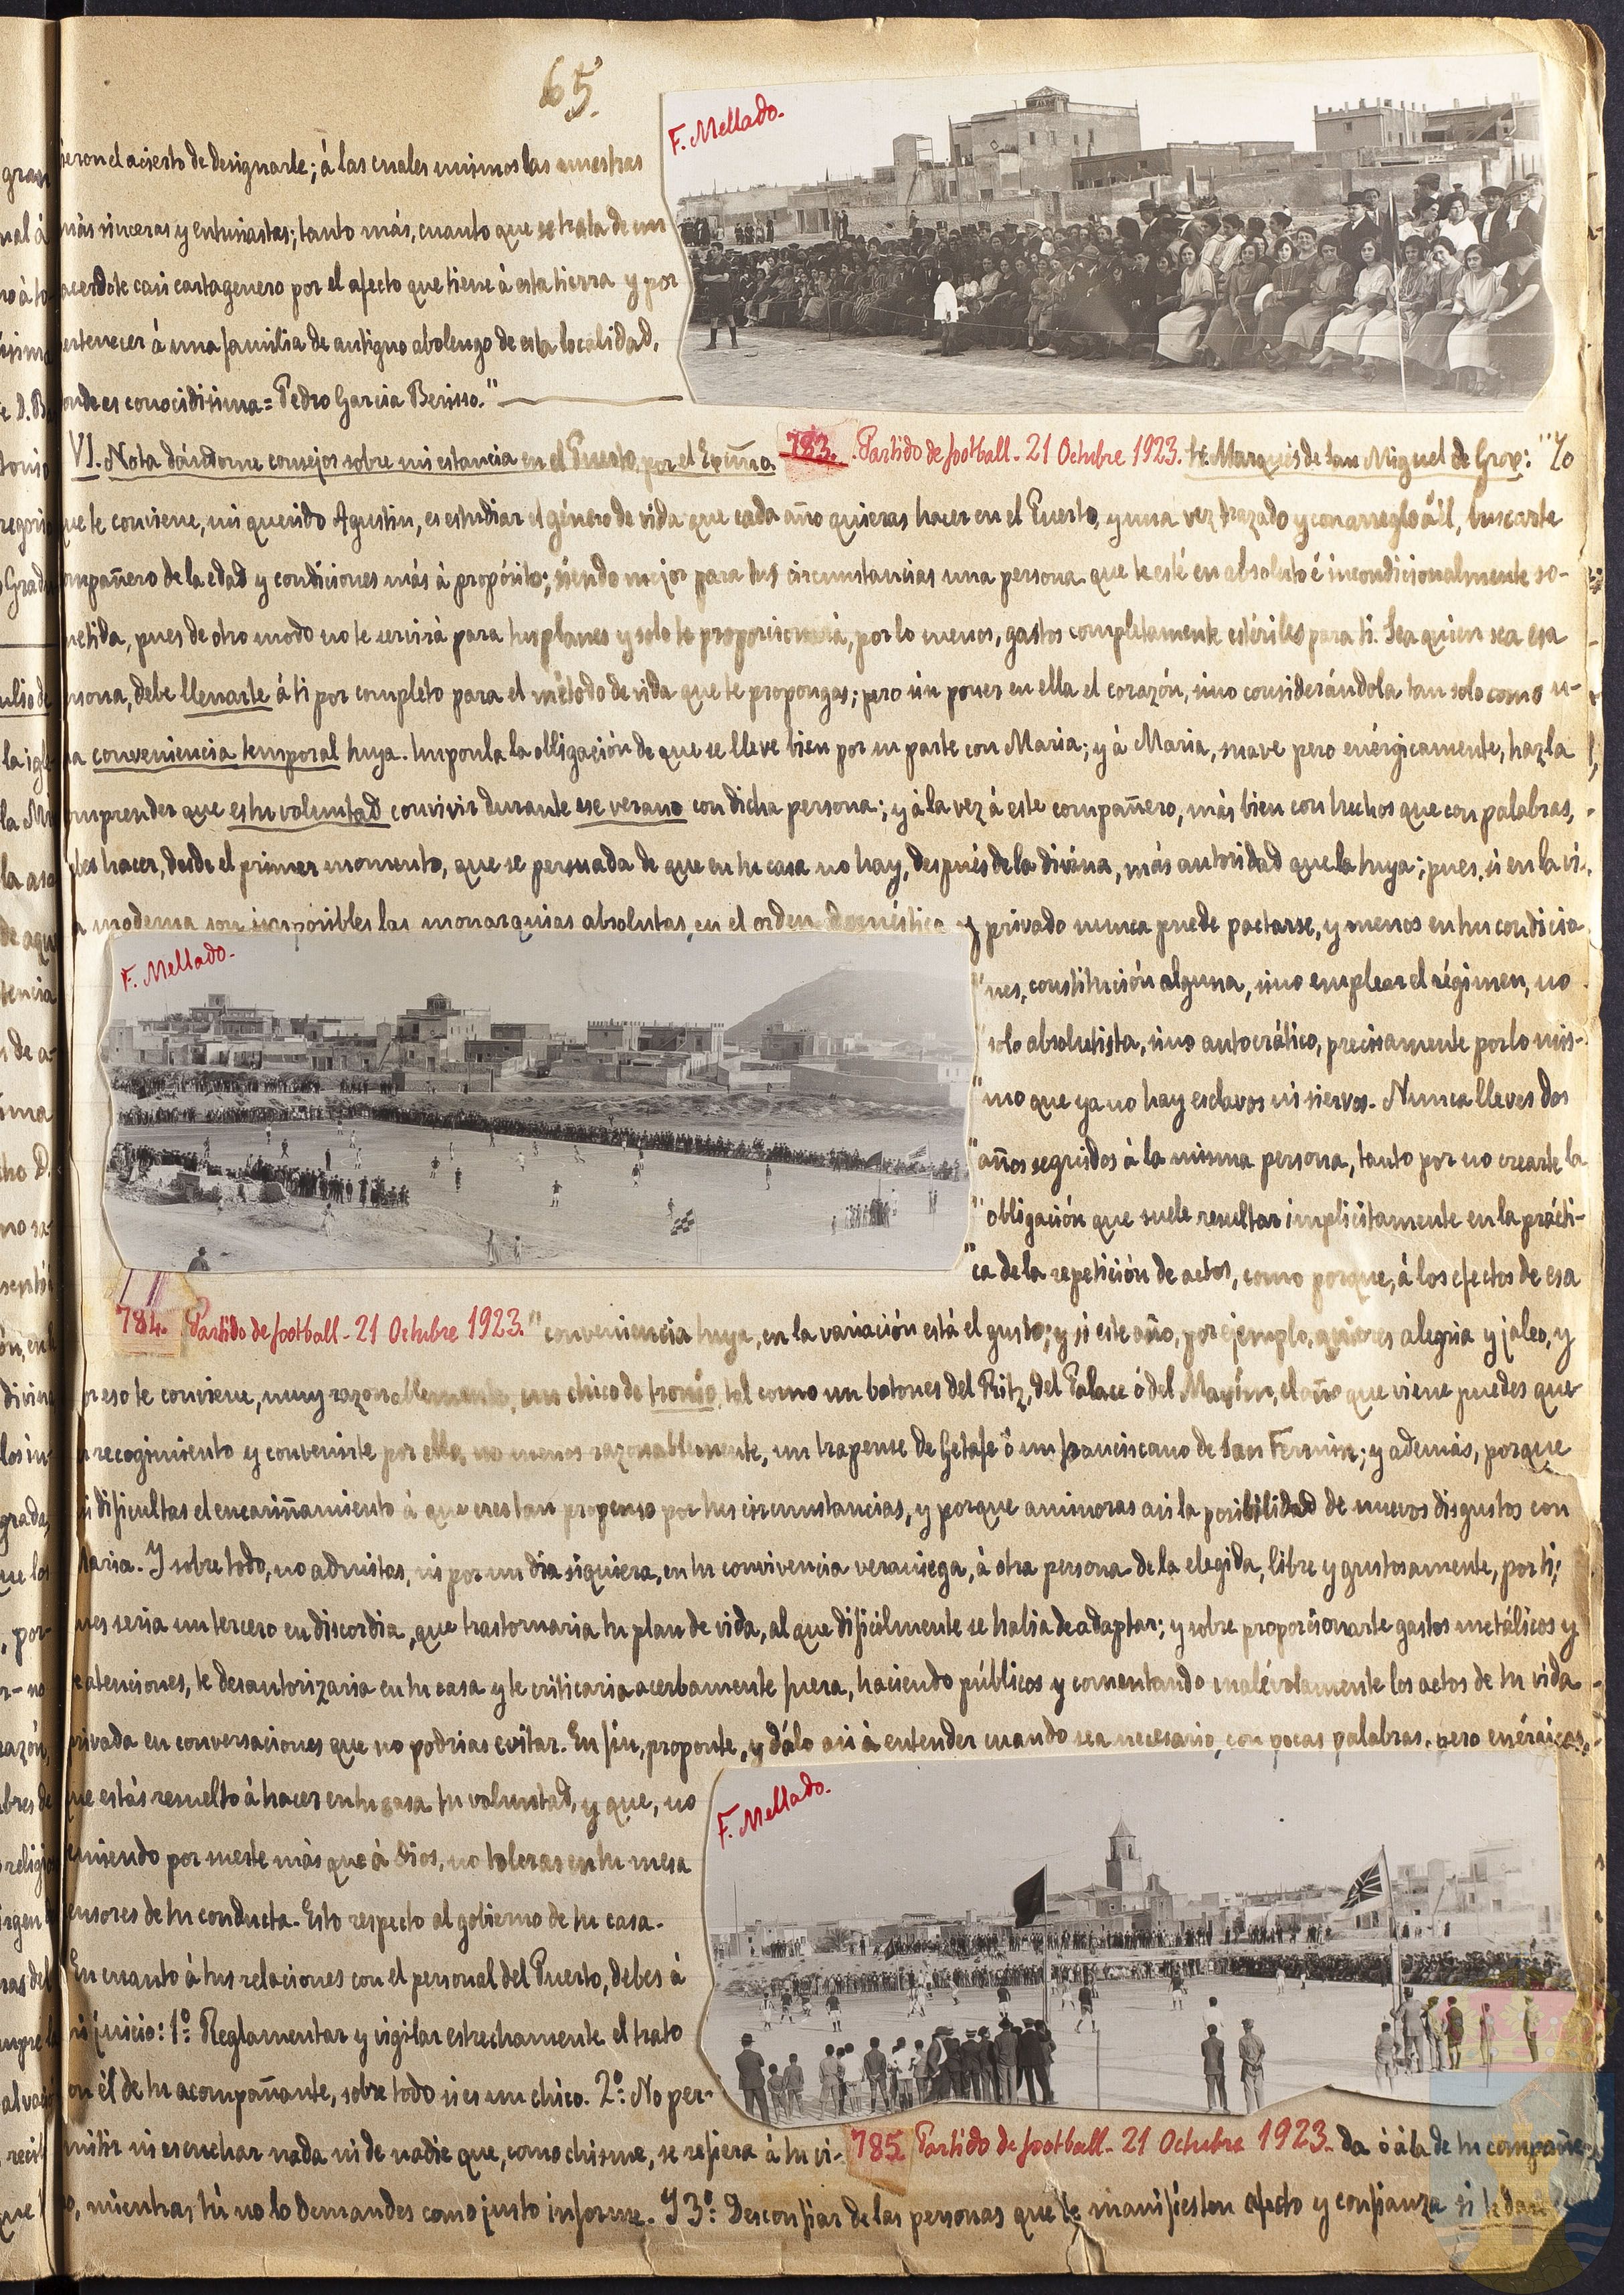 65.
F. Mellado.
ieron el acierto de designarle; á las cuales unimos las nuestras
más sinceras y entusiastas; tanto más, cuanto que se trata de un
acerdote casi cartagenero por el afecto que tiene á esta tierra y por
ertenecer á una familia de antiguo abolengo de esta localidad,
onde es conocidísima = Pedro Garcia Berisso."
VI. Nota dándome consejos sobre mi estancia en el Puerto, por el Excmo. 783. Partido de football - 21 Octubre 1923. Sr. Marqués de San Miguel de Grox: "Lo
que te conviene, mi querido Agustin, es estudiar el género de vida que cada año quieras hacer en el Puerto, y una vez trazado y con arreglo á él, buscarte
ompañero de la edad y condiciones más á propósito; siendo mejor para tus circunstancias una persona que te esté en absoluto é incondicionalmente so-
metida, pues de otro modo no te servirá para tus planes y solo te proporcionará, por lo menos, gastos completamente estériles para ti. Sea quien sea esa
ersona, debe llenarte á ti por completo para el método de vida que te propongas; pero sin poner en ella el corazón, sino considerándola tan solo como u-
na conveniencia temporal tuya. Imponla la obligación de que se lleve bien por su parte con Maria; y á Maria, suave pero enérgicamente, hazla
omprender que es tu voluntad convivir durante ese verano con dicha persona; y á la vez á este compañero, más bien con hechos que con palabras,
ebes hacer, desde el primer momento, que se persuada de que en tu casa no hay, después de la divina, más autoridad que la tuya; pues, si en la vi-
a moderna son imposibles las monarquias absolutas, en el orden doméstico y privado nunca puede pactarse, y menos en tu condicio
F. Mellado.
"nes, constitución alguna, sino emplear el régimen, no
"solo absolutista, sino autocrático, precisamente por lo mis-
"mo que ya no hay esclavos ni siervos. Nunca lleves dos
"años seguidos á la misma persona, tanto por no crearte la
"obligación que suele resultar implicitamente en la prácti-
"ca de la repetición de actos, como porque, á los efectos de esa
784. Partido de football - 21 Octubre 1923. "conveniencia tuya, en la variación está el gusto; y si este año, por ejemplo, quieres alegria y jaleo, y
or eso te conviene, muy razonablemente, un chico de tronío, tal como un botones del Ritz, del Palace ó del Maxim, el año que viene puedes que
recogimiento y convenirte por ello, no menos razonablemente, un trapense de Getafe ó un franciscano de San Fermin; y además, porque
si dificultas el encariñamiento á que eres tan propenso por tus circunstancias, y porque aminoras asi la posibilidad de nuevos disgustos con
Maria. Y sobre todo, no admitas, ni por un dia siquiera, en tu convivencia veraniega, á otra persona de la elegida, libre y gustosamente, por ti;
ues seria un tercero en discordia, que trastornaria tu plan de vida, al que dificilmente se habia de adaptar; y sobre proporcionarte gastos metálicos y
e atenciones, te desautorizaria en tu casa y te criticaria acerbamente fuera, haciendo públicos y comentando malévolamente los actos de tu vida
rivada en conversaciones que no podrias evitar. En fin, proponte, y dálo asi á entender cuando sea necesario, con pocas palabras, pero enérgicas,
que estás resuelto á hacer en tu casa tu voluntad, y que, no
eniendo por meste más que á Dios, no toleras en tu mesa
ensores de tu conducta. Esto respecto al gobierno de tu casa.
En cuanto á tus relaciones con el personal del Puerto, debes á
mi juicio: 1º: Reglamentar y vigilar estrechamente el trato
on él de tu acompañante, sobre todo si es un chico. 2º: No per-
F. Mellado.
mitir ni escuchar nada ni de nadie que, como chisme, se refiera á tu vi- 785. Partido de football - 21 Octubre 1923. da ó á la de tu compañe-
o, mientras tú no lo demandes como justo informe. Y 3º: Desconfiar de las personas que te manifiesten afecto y confianza si te dan